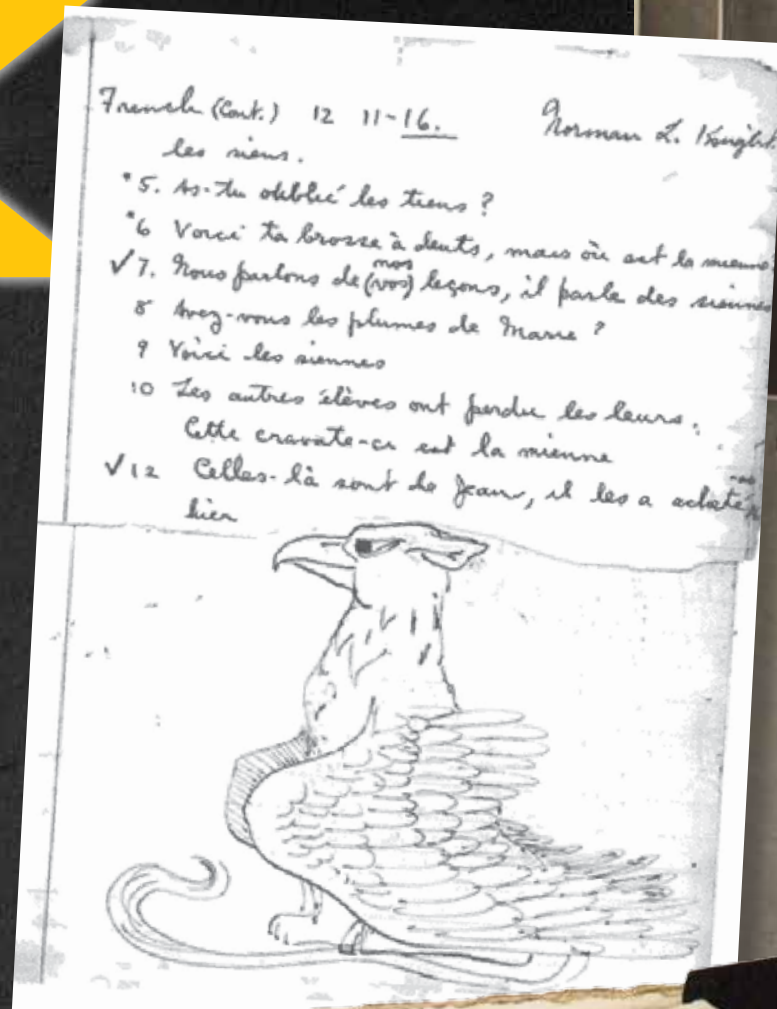 French (Cont.) 12 11-16. Norman L. Knight.
les siens.
*5. As-tu oublié les tiens ?
*6 Voici ta brosse à dents, mais où est la mienne
nos
✓7. Nous parlons de (vos) leçons, il parle des siennes
8 Avez-vous les plumes de Marie ?
9 Voici les siennes
10 Les autres élèves ont perdu les leurs.
Cette cravate-ci est la mienne
✓12 Celles-là sont de Jean, il les a acheté
hier